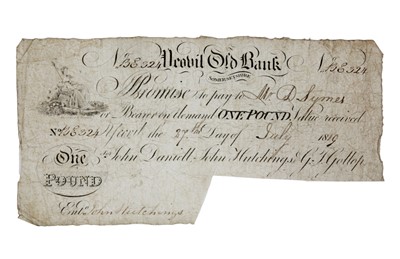 No. B8324 Yeovil Old Bank No. B8324
SOMERSETSHIRE
I Promise to pay to Mr D. Symes
or Bearer on demand ONE POUND Value received
No. B8324 Yeovil the 27th Day of July 1819
One For John Daniell John Hutchings & G. T. Gollop
POUND
Entd. John Hutchings